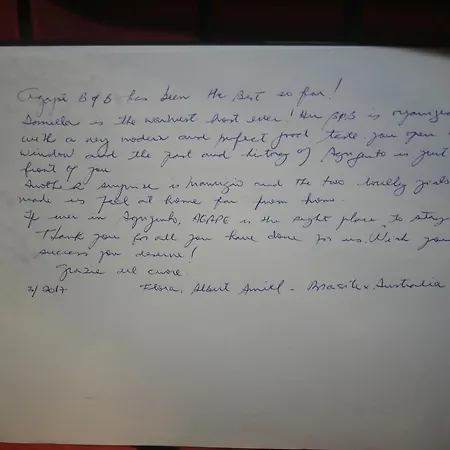 Agapè B & B has been the Best so far!
Daniella is the warmest host ever! Her B&B is organized
with a very modern and perfect good taste. you open
window and the past and history of Agrigento is just
front of you
Another surprise is Maurizio and the two lovely girls
made us feel at home far from home.
If ever in Agrigento, AGAPE is the right place to stay
Thank you for all you have done for us. Wish you
success you deserve!
Grazie del cuore.
3/2017 Albert - Brasile x Australia